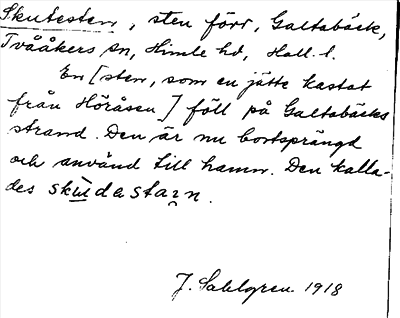 Skutesten, sten förr, Galtabäck,
Tvååkers sn, Himle hd, Hall. l.
En [sten, som en jätte kastat
från Höråsen] föll på Galtabäcks
strand. Den är nu bortsprängd
och använd till hamn. Den kalla-
des skùdastaɪn.
J. Sahlgren 1918